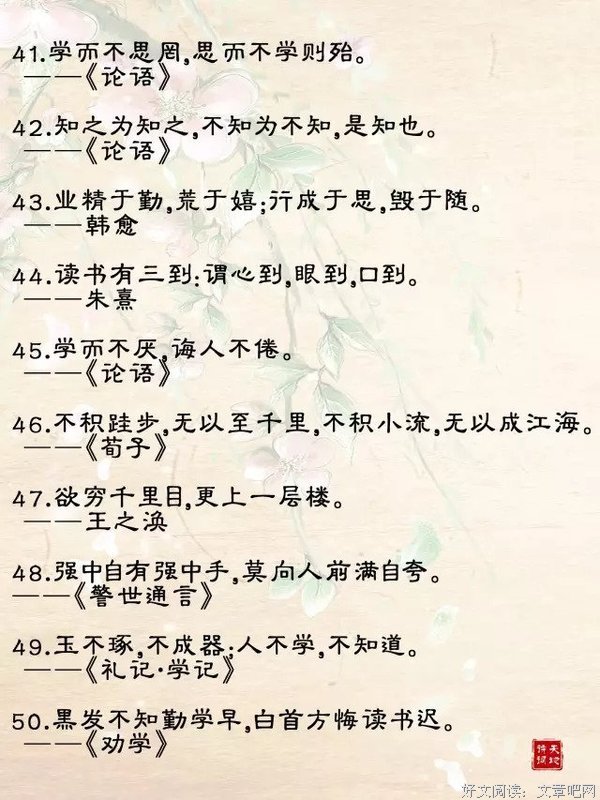 41.学而不思罔,思而不学则殆。
——《论语》
42.知之为知之,不知为不知,是知也。
——《论语》
43.业精于勤,荒于嬉;行成于思,毁于随。
——韩愈
44.读书有三到:谓心到,眼到,口到。
——朱熹
45.学而不厌,诲人不倦。
——《论语》
46.不积跬步,无以至千里,不积小流,无以成江海。
——《荀子》
47.欲穷千里目,更上一层楼。
——王之涣
48.强中自有强中手,莫向人前满自夸。
——《警世通言》
49.玉不琢,不成器;人不学,不知道。
——《礼记·学记》
50.黑发不知勤学早,白首方悔读书迟。
——《劝学》
好文阅读：文章吧网